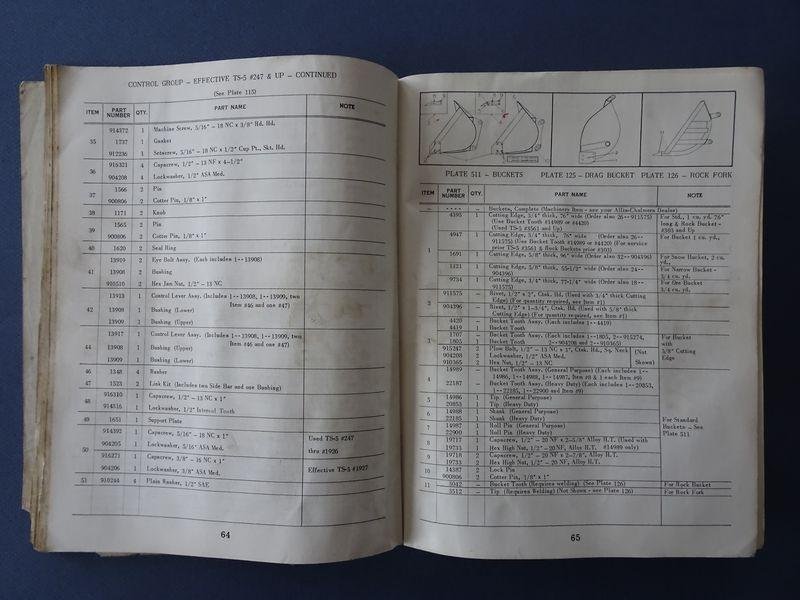 CONTROL GROUP – EFFECTIVE TS-5 #247 & UP – CONTINUED
(See Plate 115)
ITEM PART NUMBER QTY. PART NAME NOTE
914372 1 Machine Screw, 5/16" – 18 NC x 3/8" Rd. Hd.
35 1737 1 Gasket
912236 1 Setscrew, 5/16" – 18 NC x 1/2" Cup Pt., Skt. Hd.
36 916321 4 Capscrew, 1/2" – 13 NF x 4-1/2"
904208 4 Lockwasher, 1/2" ASA Med.
37 1566 2 Pin
900806 2 Cotter Pin, 1/8" x 1"
38 1171 2 Knob
39 1565 2 Pin
900806 2 Cotter Pin, 1/8" x 1"
40 1620 2 Seal Ring
13919 2 Eye Bolt Assy. (Each includes 1--13908)
41 13908 2 Bushing
910510 2 Hex Jam Nut, 1/2" – 13 NC
13913 1 Control Lever Assy. (Includes 1--13908, 1--13909, two
Item #46 and one #47)
42 13908 1 Bushing (Lower)
13909 1 Bushing (Upper)
13917 1 Control Lever Assy. (Includes 1--13908, 1--13909, two
Item #46 and one #47)
44 13908 1 Bushing (Upper)
13909 1 Bushing (Lower)
46 1348 4 Washer
47 1523 2 Link Kit (Includes two Side Bar and one Bushing)
48 916310 1 Capscrew, 1/2" – 13 NC x 1"
914816 1 Lockwasher, 1/2" Internal Tooth
49 1651 1 Support Plate
914392 1 Capscrew, 5/16" – 18 NC x 1"
50 904205 1 Lockwasher, 5/16" ASA Med.
Used TS-5 #247
thru #1926
916271 1 Capscrew, 3/8" – 16 NC x 1"
904206 1 Lockwasher, 3/8" ASA Med.
Effective TS-5 #1927
51 910244 4 Plain Washer, 1/2" SAE
64
PLATE 511 – BUCKETS PLATE 125 – DRAG BUCKET PLATE 126 – ROCK FORK
ITEM PART NUMBER QTY. PART NAME NOTE
– ---- – Buckets, Complete (Machinery Item - see your Allis-Chalmers Dealer)
1 4395 1 Cutting Edge, 3/4" thick, 76" wide (Order also 26--911575)
(Use Bucket Tooth #14989 or #4420)
(Used TS-5 #3561 and Up)
For Std., 1 cu. yd. 76"
long & Rock Bucket -
#303 and Up
4947 1 Cutting Edge, 3/4" thick, 76" wide (Order also 26--
911575) (Use Bucket Tooth #14989 or #4420) (For service
prior TS-5 #3561 & Rock Buckets prior #303)
For Bucket 1 cu. yd.,
1691 1 Cutting Edge, 5/8" thick, 96" wide (Order also 32--904396)
For Snow Bucket, 2 cu.
yd.,
1421 1 Cutting Edge, 5/8" thick, 55-1/2" wide (Order also 24--
904396)
For Narrow Bucket -
3/4 cu. yd.
9734 1 Cutting Edge, 3/4" thick, 77-1/4" wide (Order also 18--
911575)
For Ore Bucket
3/4 cu. yd.
2 911575 – Rivet, 1/2" x 2", Ctsk. Hd. (Used with 3/4" thick Cutting
Edge) (For quantity required, see Item #1)
904396 – Rivet, 1/2" x 1-3/4", Ctsk. Hd. (Used with 5/8" thick
Cutting Edge) (For quantity required, see Item #1)
3 4420 – Bucket Tooth Assy. (Each includes 1--4419)
4419 1 Bucket Tooth
1707 – Bucket Tooth Assy. (Each includes 1--1805, 2--915274,
1805 1 Bucket Tooth 2--904208 and 2--910365)
915247 2 Plow Bolt, 1/2" – 13 NC x 1", Ctsk. Hd., Sq. Neck
904208 2 Lockwasher, 1/2" ASA Med.
910365 2 Hex Nut, 1/2" – 13 NC
(Not
Shown)
For Bucket
with
5/8" Cutting
Edge
4 14989 – Bucket Tooth Assy. (General Purpose) (Each includes 1--
14986, 1--14988, 1--14987, Item #8 & 1 each Item #9)
22187 – Bucket Tooth Assy. (Heavy Duty) (Each includes 1--20853,
1--22185, 1--22900 and Item #9)
5 14986 1 Tip (General Purpose)
20853 1 Tip (Heavy Duty)
6 14988 1 Shank (General Purpose)
22185 1 Shank (Heavy Duty)
7 14987 1 Roll Pin (General Purpose)
22900 1 Roll Pin (Heavy Duty)
8 19717 1 Capscrew, 1/2" – 20 NF x 2-5/8" Alloy H.T. (Used with
19733 1 Hex High Nut, 1/2" – 20 NF, Alloy H.T. #14989 only)
9 19718 2 Capscrew, 1/2" – 20 NF x 2-7/8", Alloy H.T.
19733 2 Hex High Nut, 1/2" – 20 NF, Alloy H.T.
10 14387 2 Lock Pin
900806 2 Cotter Pin, 1/8" x 1"
For Standard
Buckets – See
Plate 511
11 5042 – Bucket Tooth (Requires welding) (See Plate 126) For Rock Bucket
3512 – Tip (Requires Welding) (Not Shown - see Plate 126) For Rock Fork
65